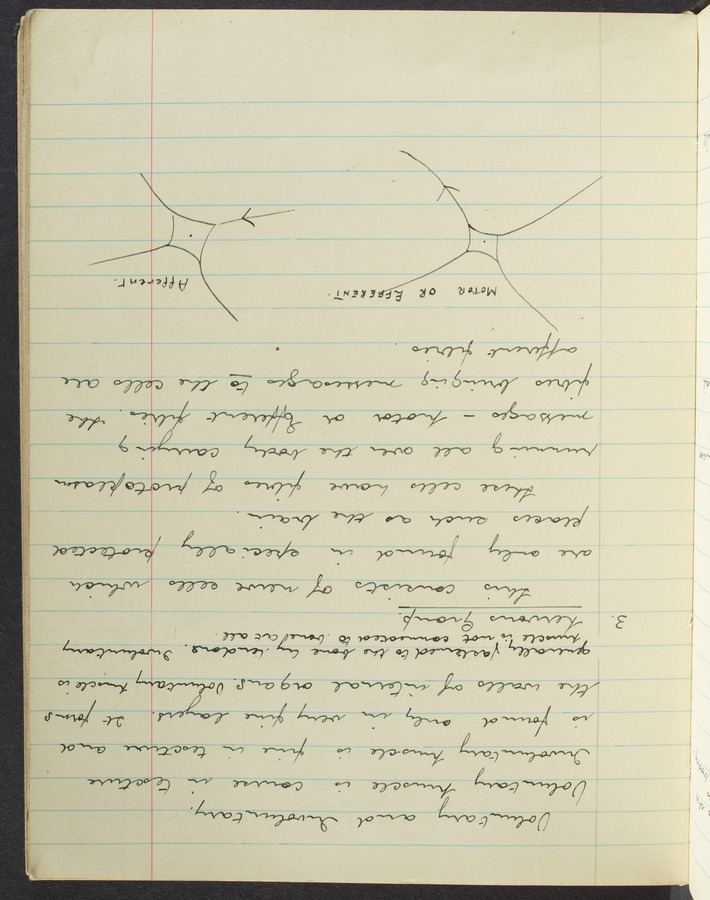 Voluntary and Involuntary.
Voluntary muscle is coarse in texture
Involuntary muscle is fine in texture and
is found only in very fine layers. It forms
the walls of internal organs. Voluntary muscle is
generally fastened to the bone by tendons. Involuntary
muscle is not connected to bone at all.
3. Nervous Group.
This consists of nerve cells which
are only found in specially protected
places such as the brain.
These cells have fibres of protoplasm
running all over the body carrying
messages – motor or Efferent fibres. The
fibres bringing messages to the cells are
afferent fibres
MOTOR OR EFFERENT.
Afferent.